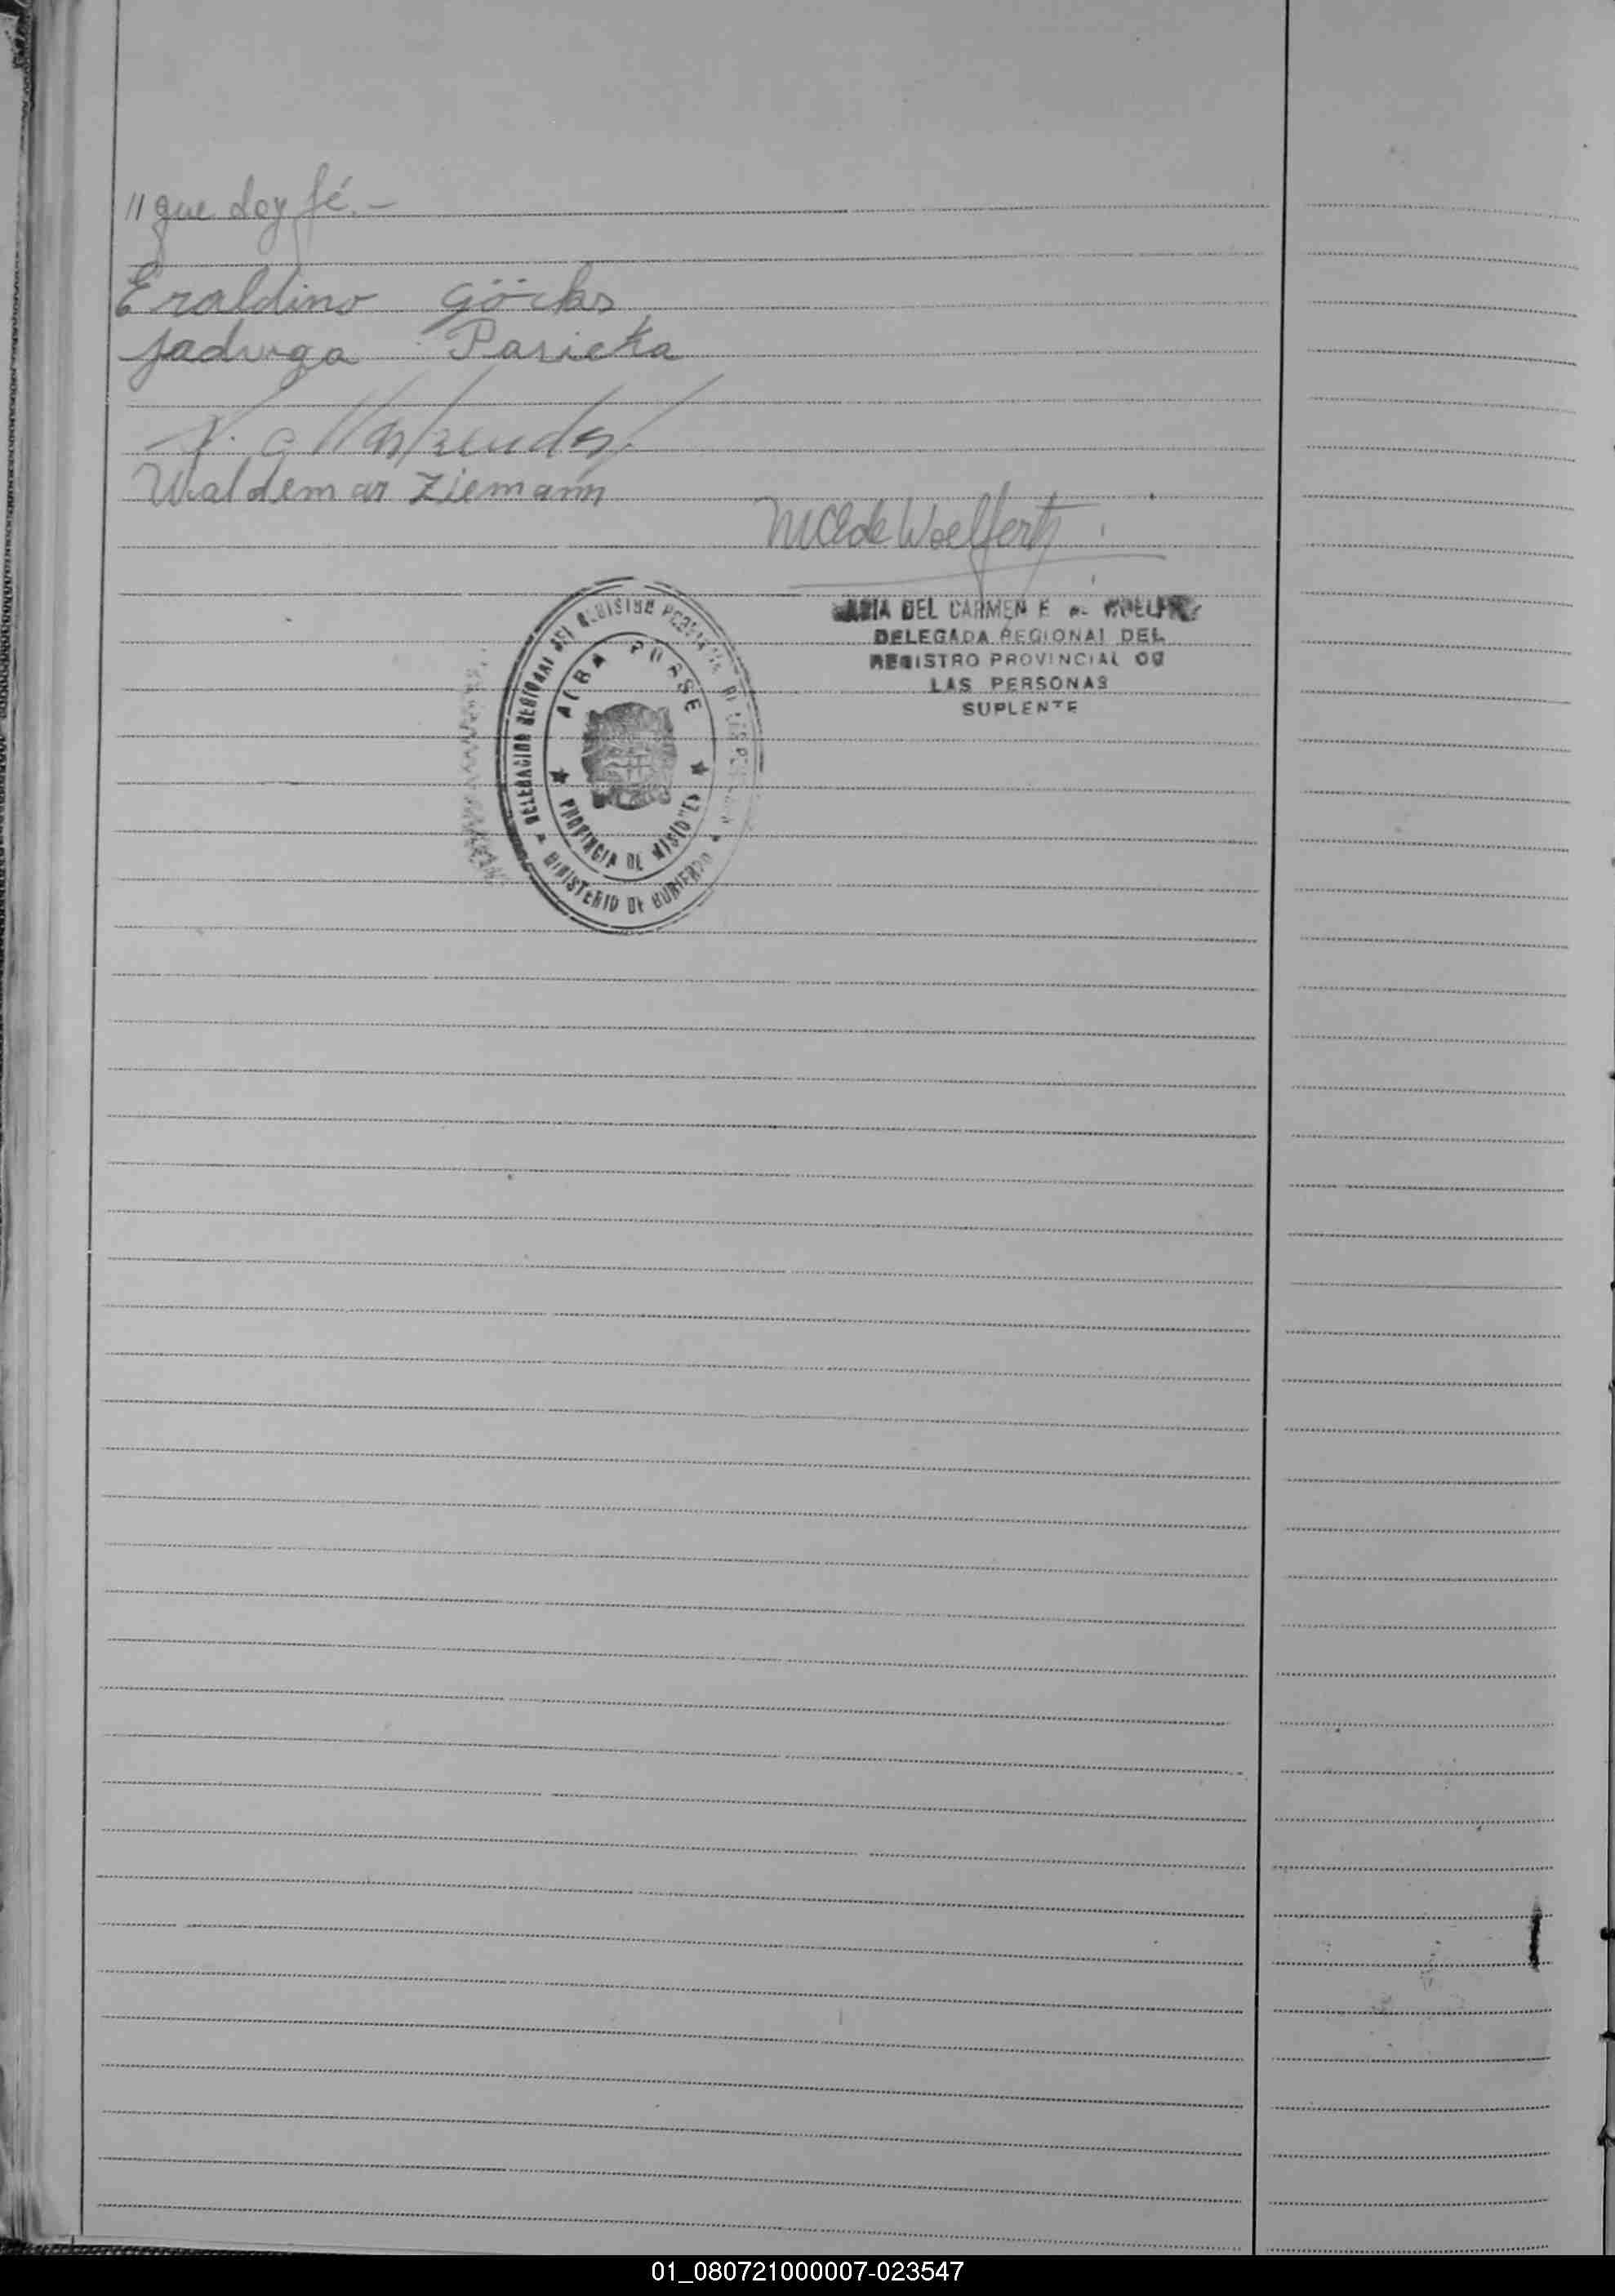 // que doy fé.-
Eraldino Göcks
Jadwga Paricka
Waldemar Ziemann
MCE de Woelfert
ARIA DEL CARMEN E
DELEGADA REGIONAL DEL
REGISTRO PROVINCIAL DE
LAS PERSONAS
SUPLENTE
DELEGACION REGIONAL DEL REGISTRO PROVINCIAL DE LAS PERSONAS
ALBA POSSE
PROVINCIA DE MISIONES
MINISTERIO DE GOBIERNO
01_080721000007-023547